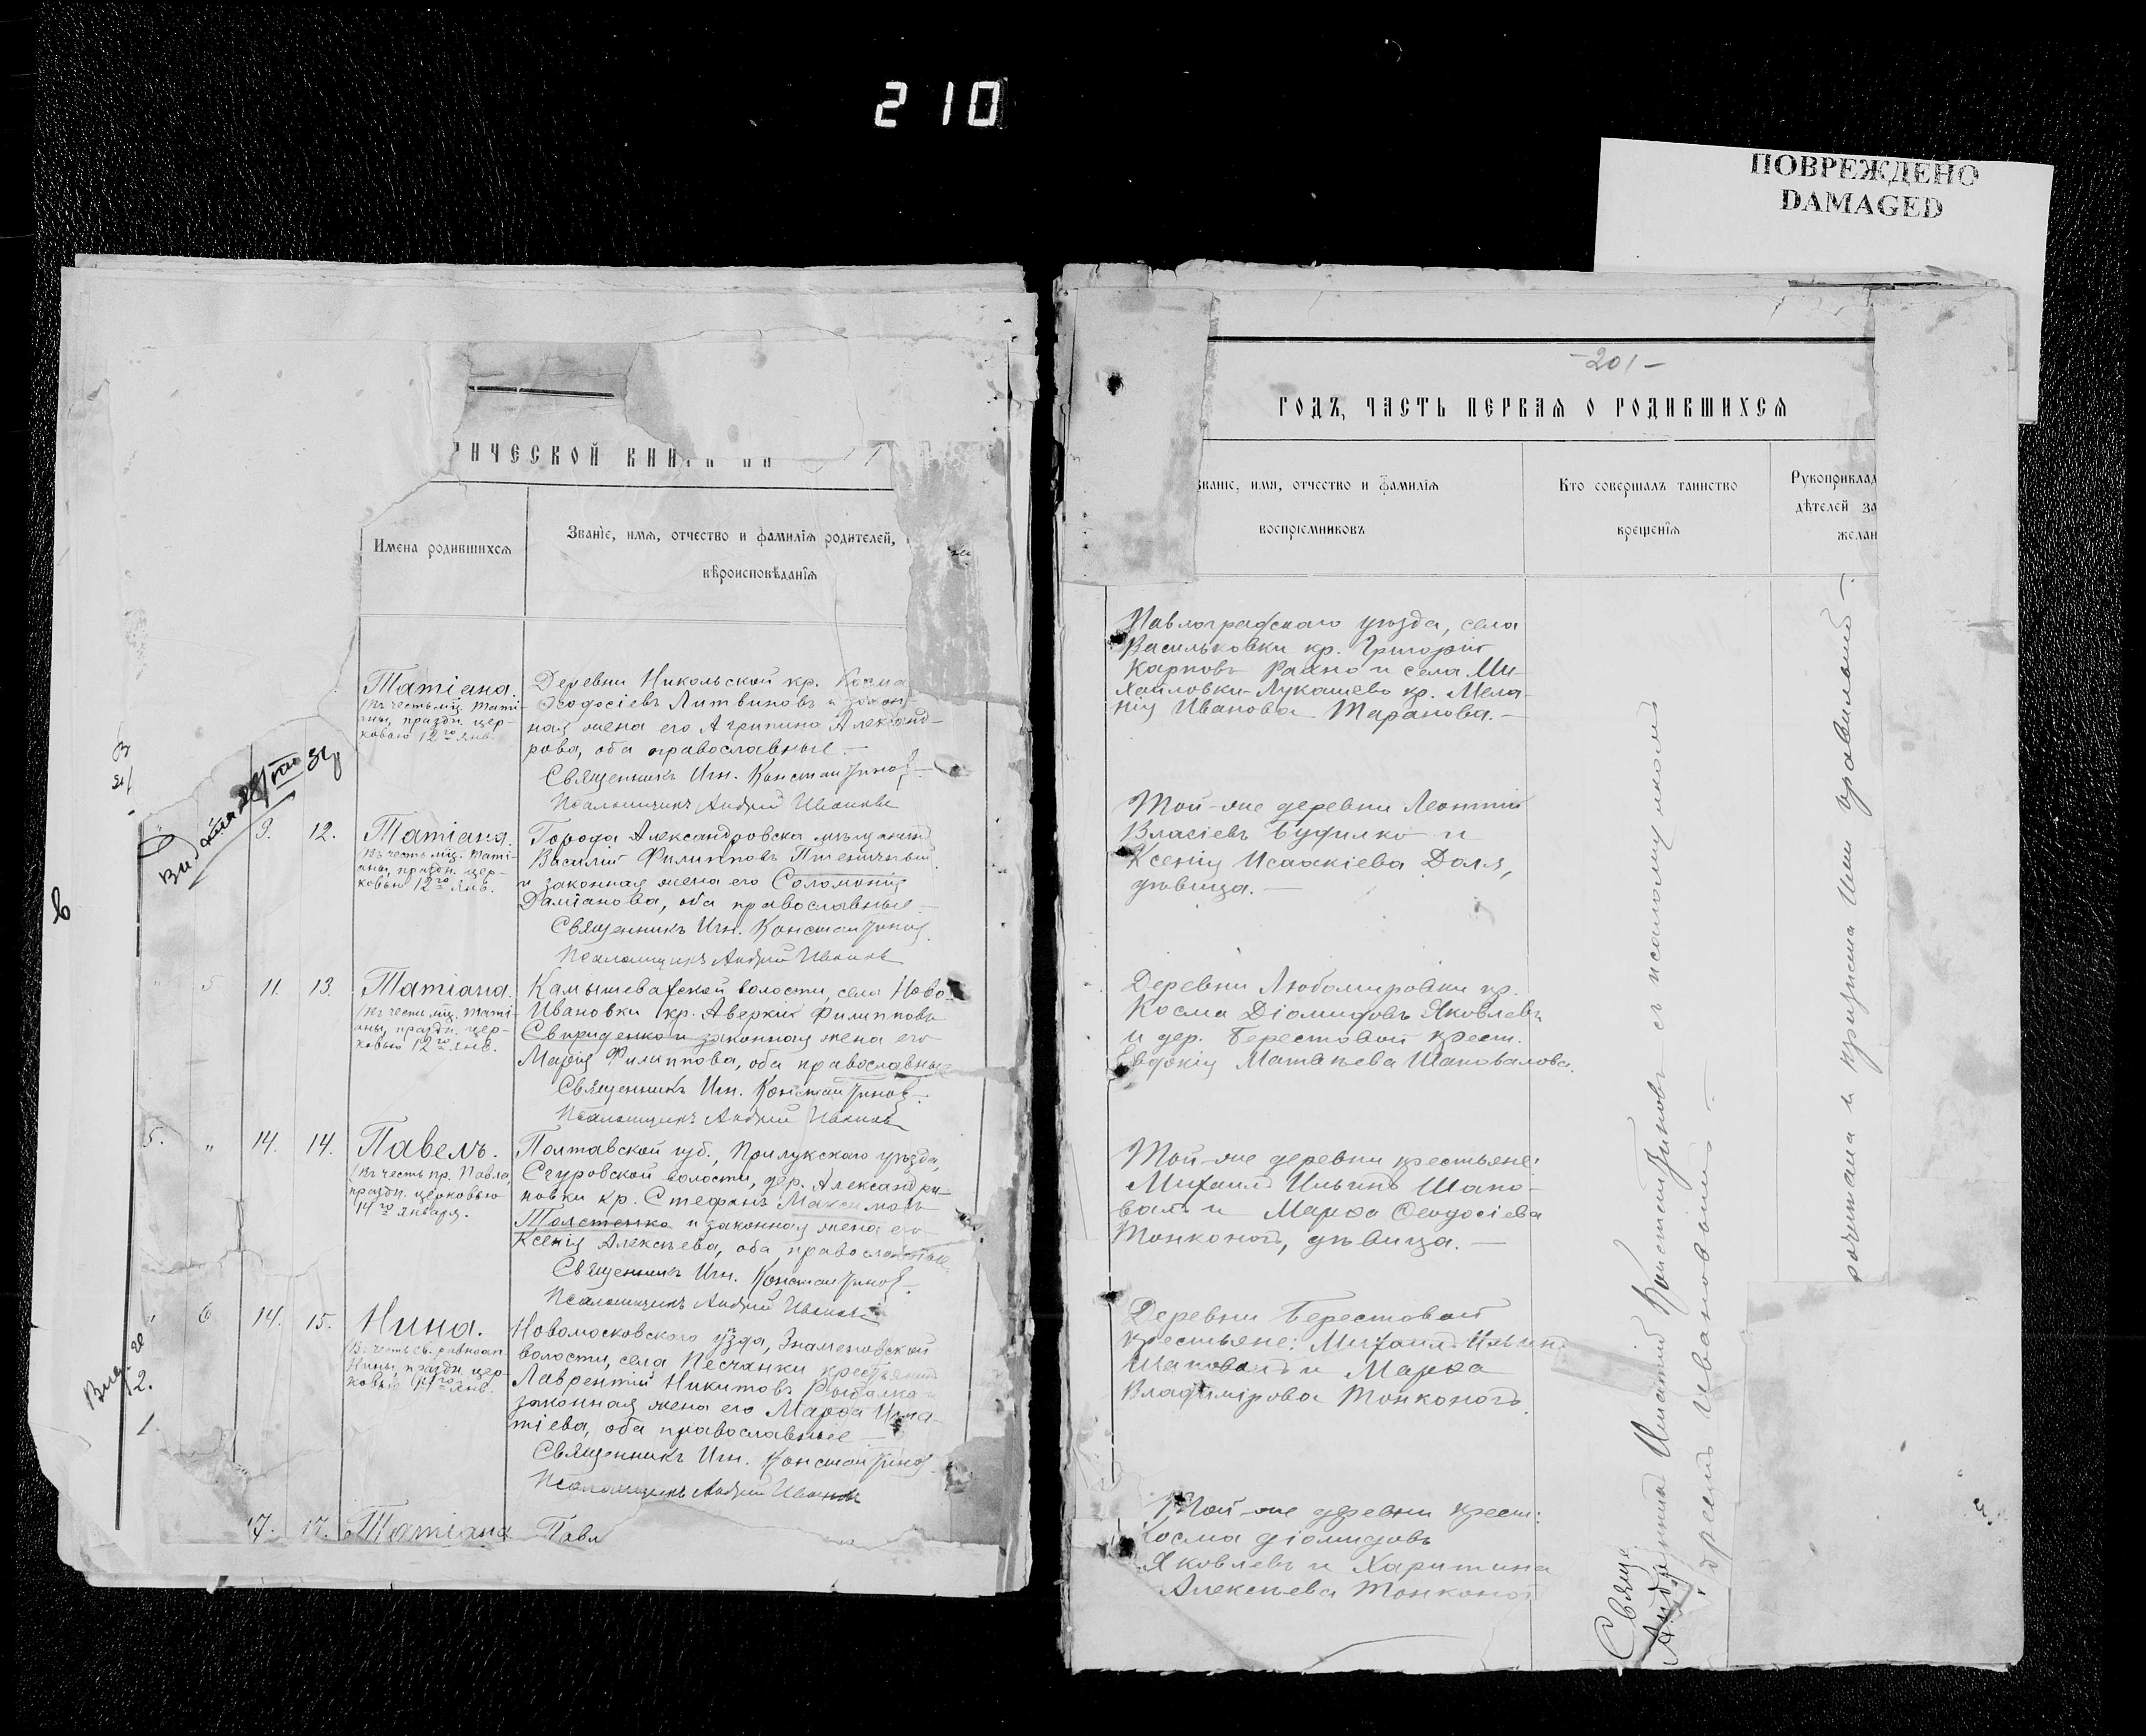 210
ПОВРЕЖДЕНО
DAMAGED
ической книги
Имена родившихся
Званіе, имя, отчество и фамилія родителей,
вѣроисповѣданія
Татіана.
Деревни Никольской кр. Косма
Ѳеодосіевъ Литвиновъ и закон
ная жена его Агрипина Александ-
рова, оба православные.—
Священникъ Игн. Константинов
Псаломщикъ Андрей Ивановъ
9. 12.
Татіана.
/въ честь мц. Тати-
аны, праздн. цер-
ковью 12го Янв.
Города Александровска мѣщанинъ
Василій Филипповъ Пшеничный
и законная жена его Соломонія
Даміанова, оба православные.—
Священникъ Игн. Константинов
Псаломщикъ Андрей Ивановъ
" 5 11. 13.
Татіана.
/въ честь мц. Тати-
аны, праздн. цер-
ковью 12го Янв.
Камышеватской волости, села Ново-
Ивановки кр. Аверкій Филипповъ
Свириденко и законная жена его
Марія Филиппова, оба православные
Священникъ Игн. Константинов.
Псаломщикъ Андрей Ивановъ
5. " 14. 14.
Павелъ.
/въ честь пр. Павла,
праздн. церковью
14го Января.
Полтавской губ., Прилукскаго уѣзда,
Сгуровской волости, дер. Александри-
новки кр. Стефанъ Максимовъ
Толстенко и законная жена его
Ксенія Алексѣева, оба православные.
Священникъ Игн. Константинов.
Псаломщикъ Андрей Ивановъ
" 6 14. 15.
Нина.
Новомосковскаго уѣзда, Знаменовской
волости, села Песчанки крестьянинъ
Лаврентій Никитовъ Рыбалка и
законная жена его Марфа Игна-
тіева, оба православные —
Священникъ Игн. Константинов
Псаломщикъ Андрей Ивановъ
17. 17. Татіана Павл
-201-
годъ, часть первая о родившихся
Званіе, имя, отчество и фамилія
воспріемниковъ
Кто совершалъ таинство
крещенія
Рукоприклад
дѣтелей за
желан
Павлоградскаго уѣзда, села
Васильковки кр. Григорій
Карповъ Рахно и села Ми-
хайловки-Лукашево кр. Мела-
нія Иванова Таранова.—
Той-же деревни Леонтій
Власіевъ и
Ксенія Исаакіева Доля,
дѣвица.—
Деревни Любомировки кр.
Косма Діомидовъ Яковлевъ
и дер. Берестовой крест.
Евдокія Матвѣева Шаповалова.
Той-же деревни крестьяне:
Михаилъ Ильинъ Шапо-
валъ и Марѳа Ѳеодосіева
Тонконогъ, дѣвица.—
Деревни Берестовой
крестьяне: Михаилъ Ильинъ
Шаповалъ и Марѳа
Владимірова Тонконогъ.
Той-же деревни крест:
Косма Діомидовъ
Яковлевъ и Харитина
Алексѣева Тонконогъ
Игнатій Константиновъ съ псаломщикомъ
Ивановымъ.—